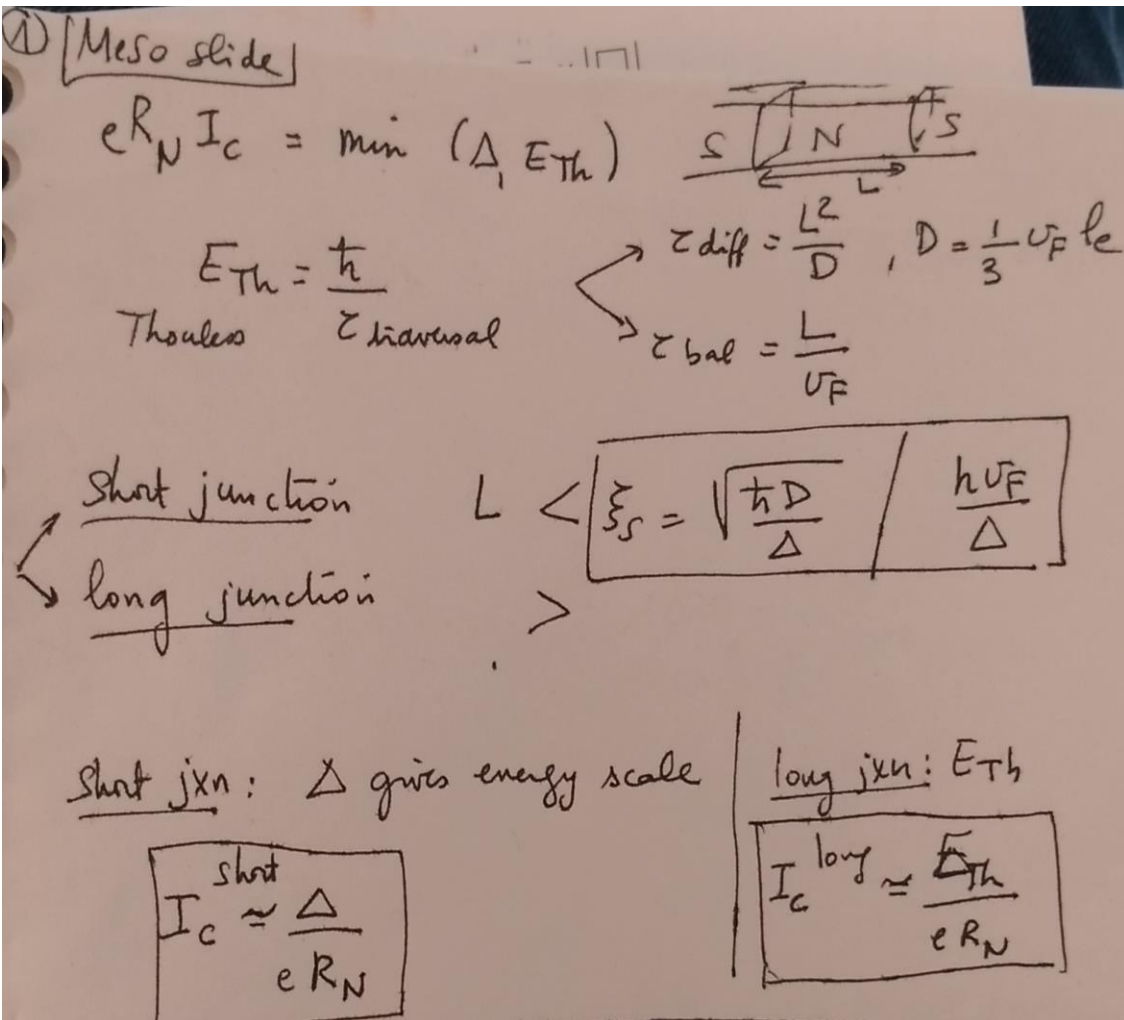 ① [Meso slide]
eR_N I_C = min (Δ, E_Th)
S N S
L
E_Th = ħ / τ traversal
Thouless
τ diff = L² / D , D = 1/3 v_F le
τ bal = L / v_F
Short junction L < ξ_S = √(ħD / Δ) / hv_F / Δ
long junction >
Short jxn : Δ gives energy scale
I_C^short ≃ Δ / e R_N
long jxn : E_Th
I_C^long ≃ E_Th / e R_N